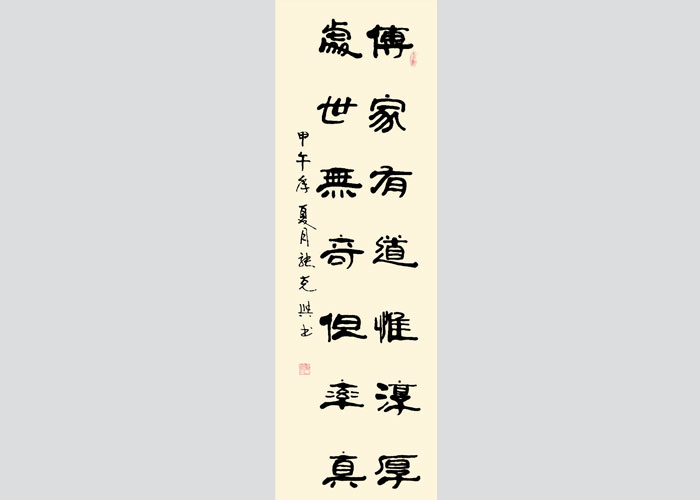 傳家有道惟淳厚
處世無奇但率真
甲午年夏月張克書